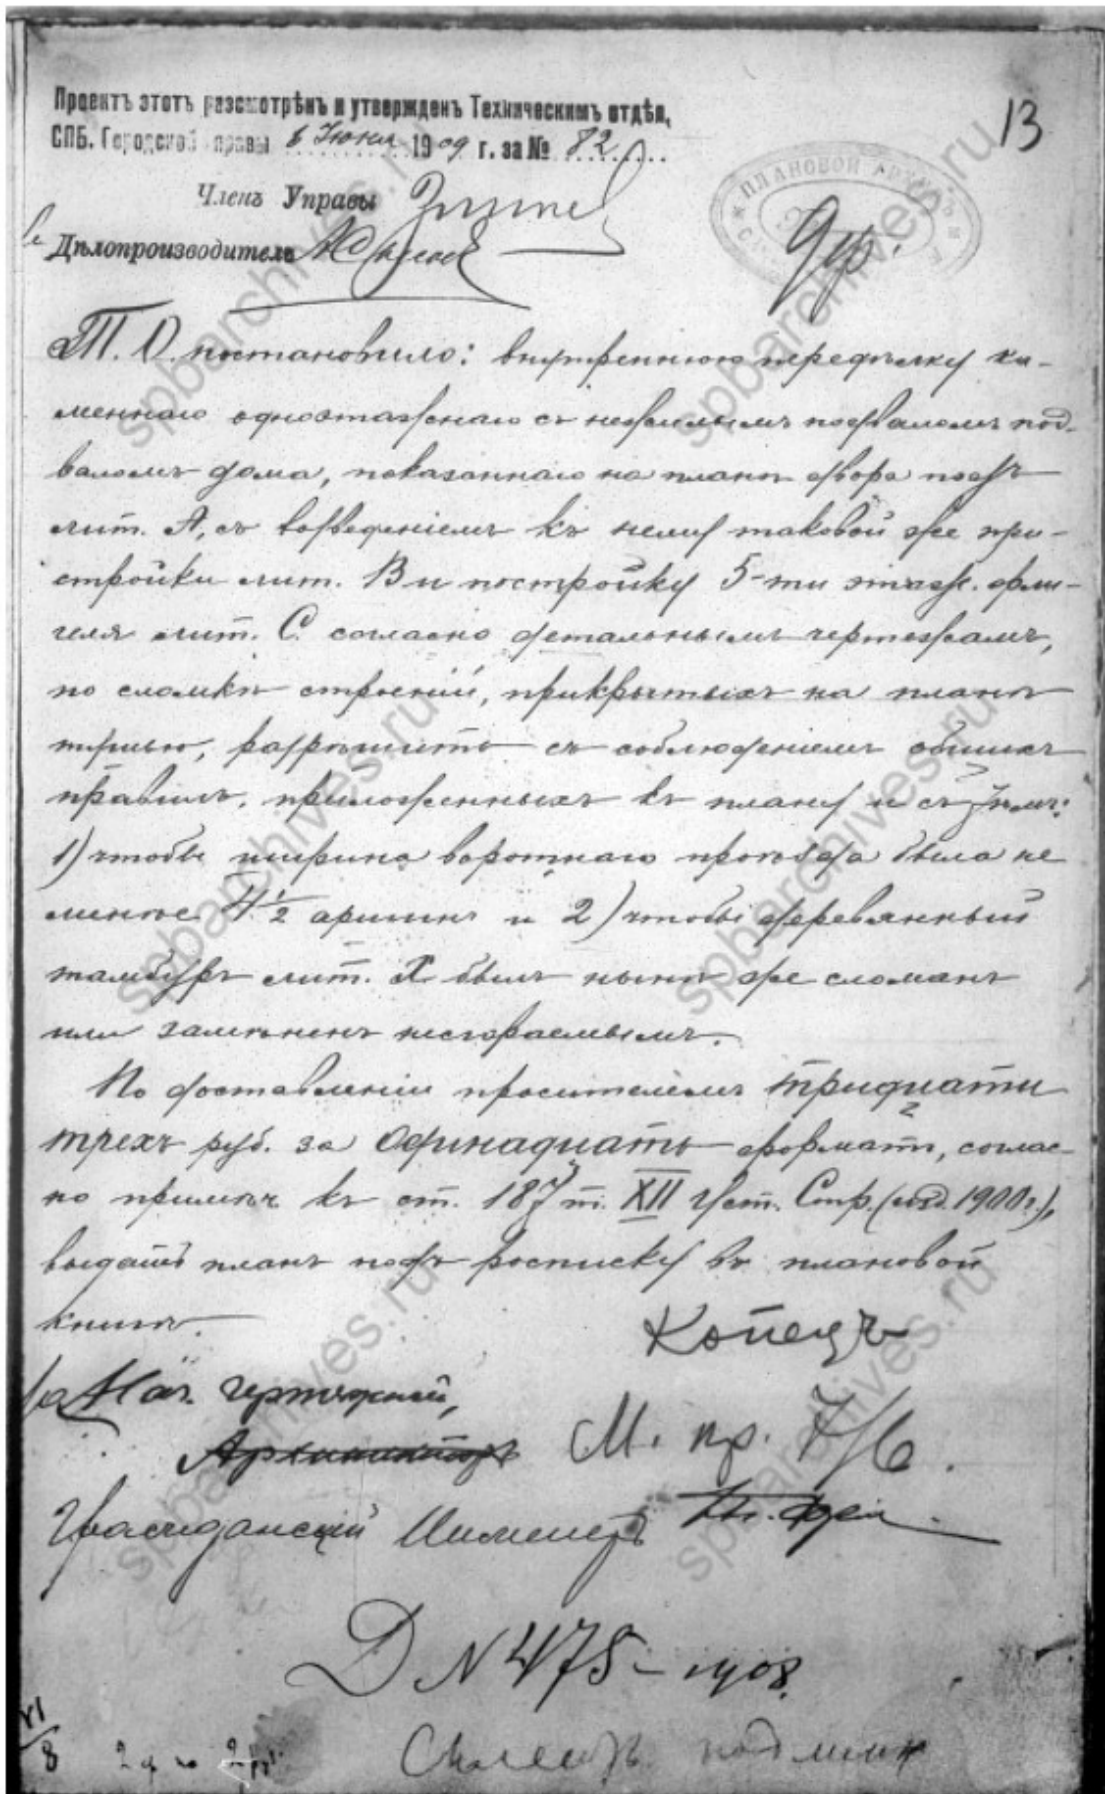 13
Проектъ этотъ разсмотрѣнъ и утвержденъ Техническимъ отдѣл,
СПБ. Городской правы 6 Июня 1909 г. за № 82
Членъ Управы
Дѣлопроизводитель
ПЛАНОВОЙ АРХИВЪ
9 ф.
Т. О. постановило: внутреннюю передѣлку ка-
меннаго одноэтажнаго съ нежилымъ подваломъ под-
валомъ дома, показаннаго на планѣ двора подъ
лит. А, съ возведеніемъ къ нему таковой же при-
стройки лит. В и постройку 5-ти этаж. фли-
геля лит. С. согласно детальнымъ чертежамъ,
по сломкѣ строеній, прикрытыхъ на планѣ
тушью, разрѣшить съ соблюденіемъ общихъ
правилъ, приложенныхъ къ плану и съ тѣмъ:
1) чтобы ширина воротнаго проѣзда была не
менѣе 4 1/2 аршинъ и 2) чтобы деревянный
тамбуръ лит. Х былъ нынѣ же сломанъ
или замѣненъ несгораемымъ.
По доставленіи просителемъ тридцати
трехъ руб. за одинадцать форматъ, соглас-
но примѣч къ ст. 187 т. XII Уст. Стр. (изд. 1900 г.),
выдать планъ подъ росписку въ плановой
книгѣ.
Копецъ
За Нач. чертежной,
Архитекторъ
М. пр. 7/6.
Гражданскій Инженеръ
Д N 478 - 1908.
VI/8
spbarchives.ru
spbarchives.ru
spbarchives.ru
spbarchives.ru
spbarchives.ru
spbarchives.ru